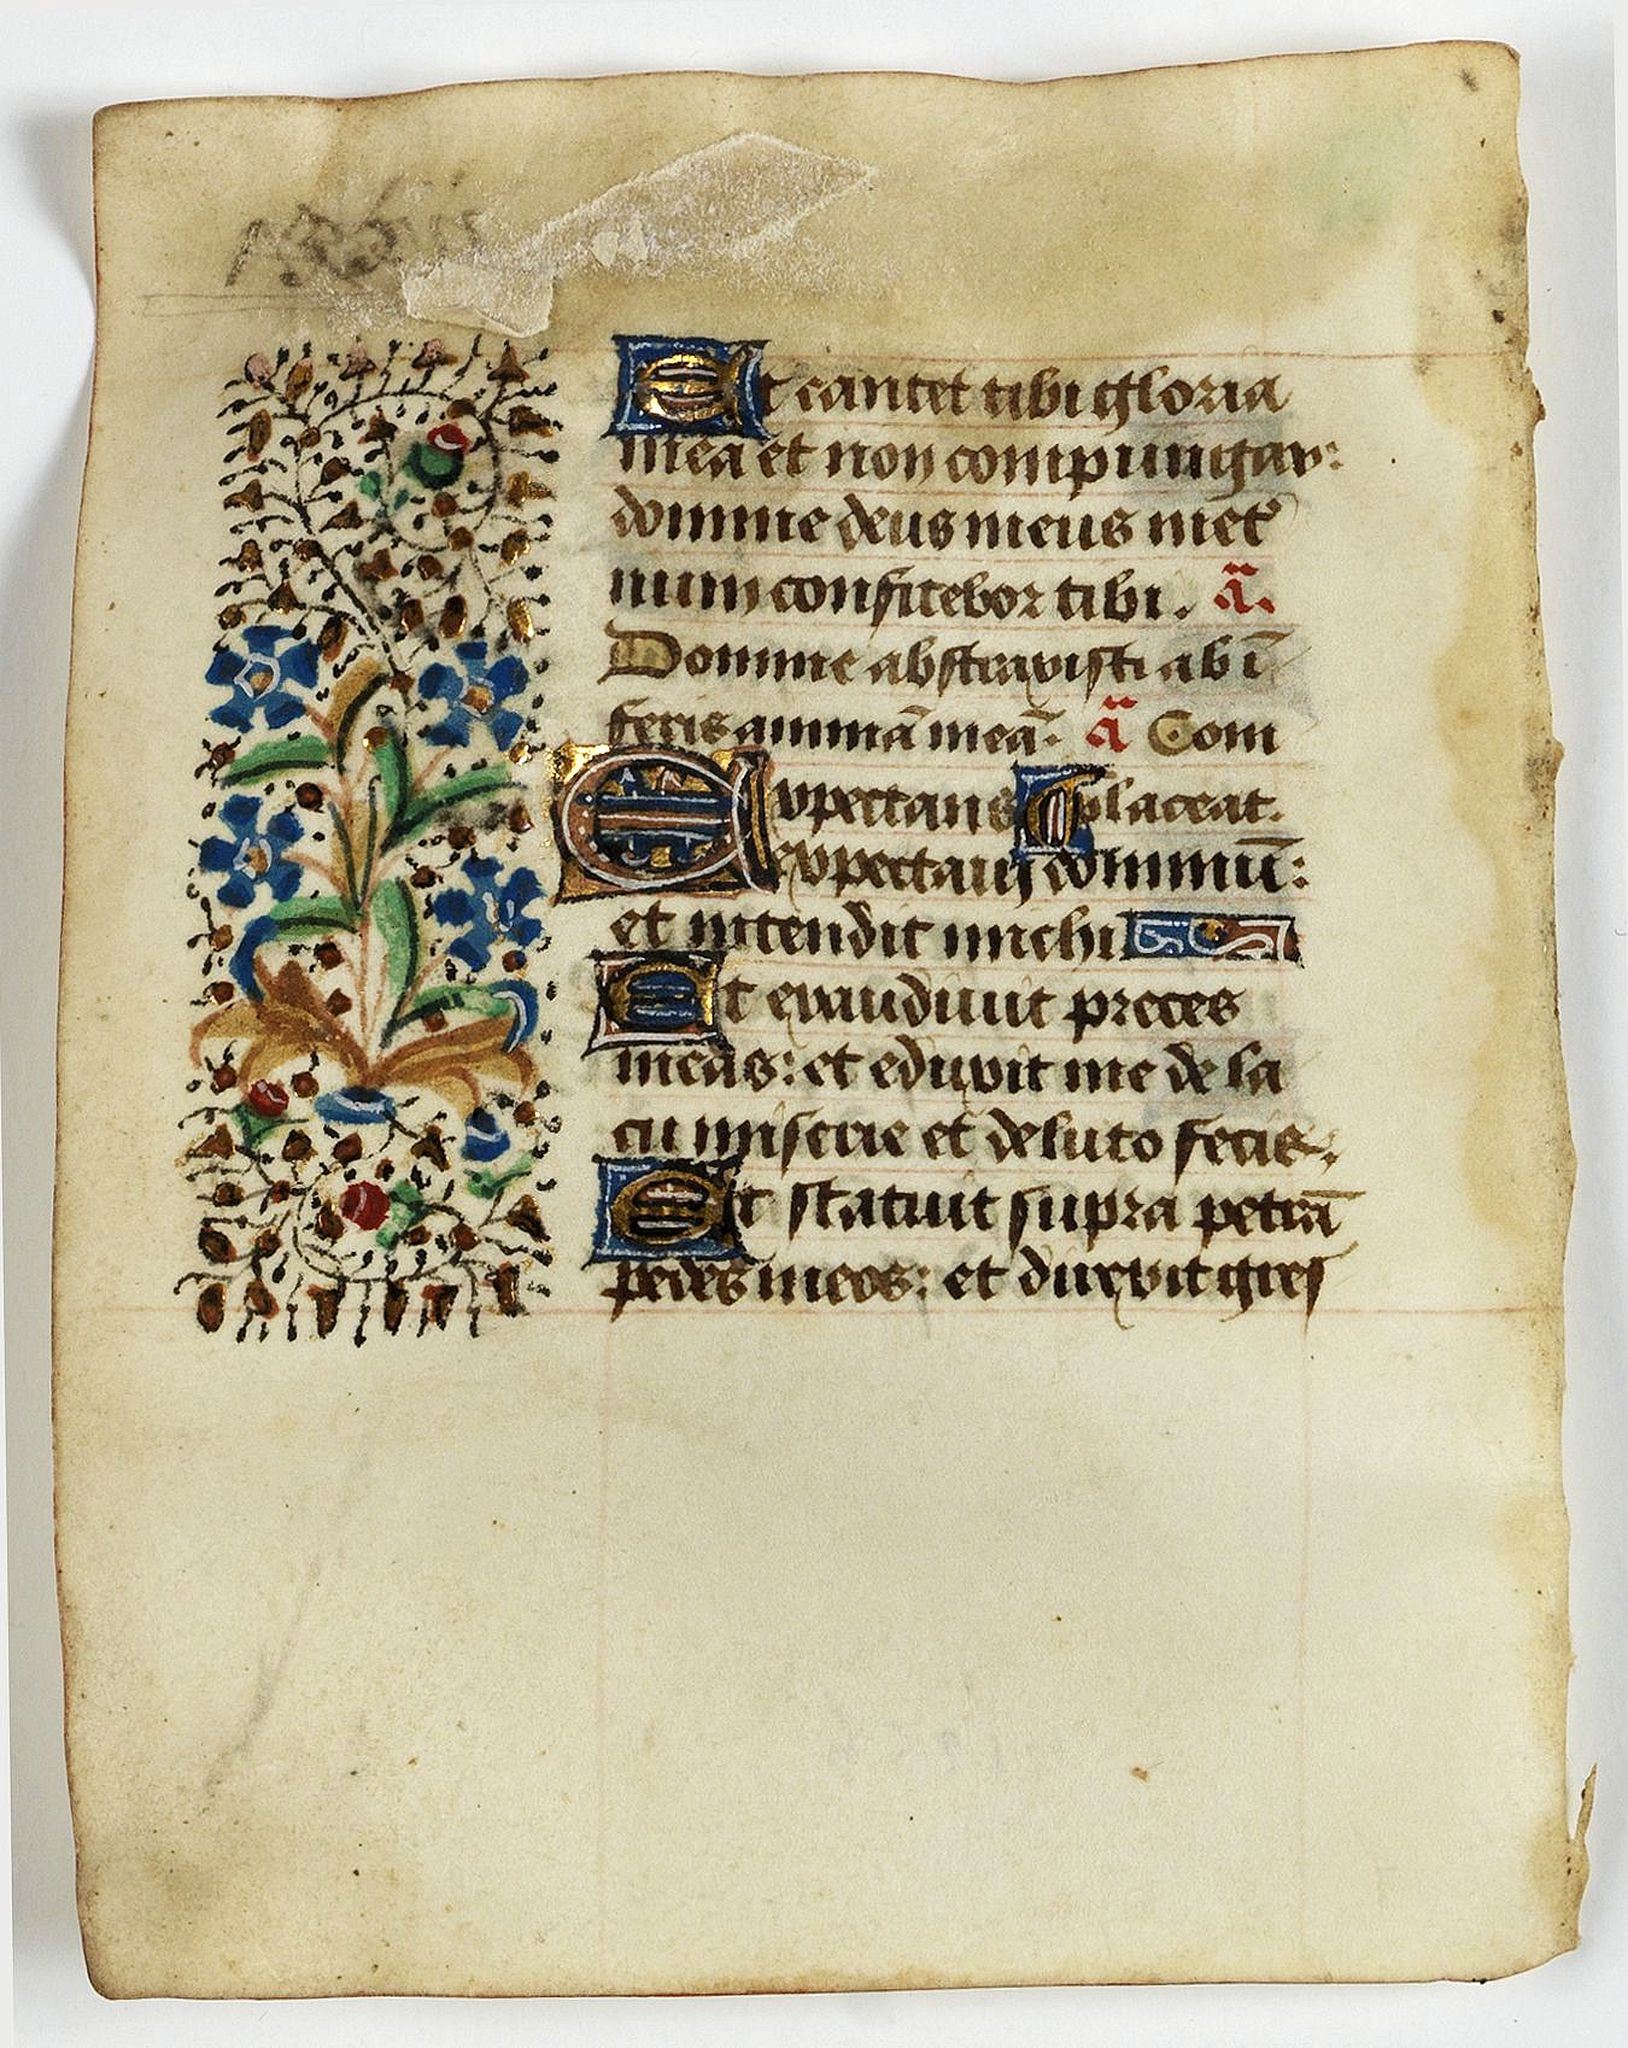 Et cantet tibi gloria
mea et non compungar:
domine deus meus in et̃
num confitebor tibi. ã.
Domine abstraxisti ab ī
feris animā meā. ã Com
Expectans placeat.
expectaui dominū:
et intendit michi
Et exaudiuit preces
meas: et eduxit me de la
cu miserie et de luto fecis.
Et statuit supra petrā
pedes meos: et direxit gres